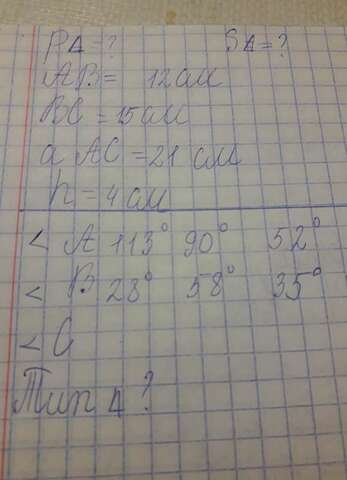 PΔ=? SΔ=?
AB= 12 см
BC = 15 см
a AC = 21 см
h = 4 см
< A 113° 90° 52°
< B 28° 58° 35°
< C
Тип Δ ?